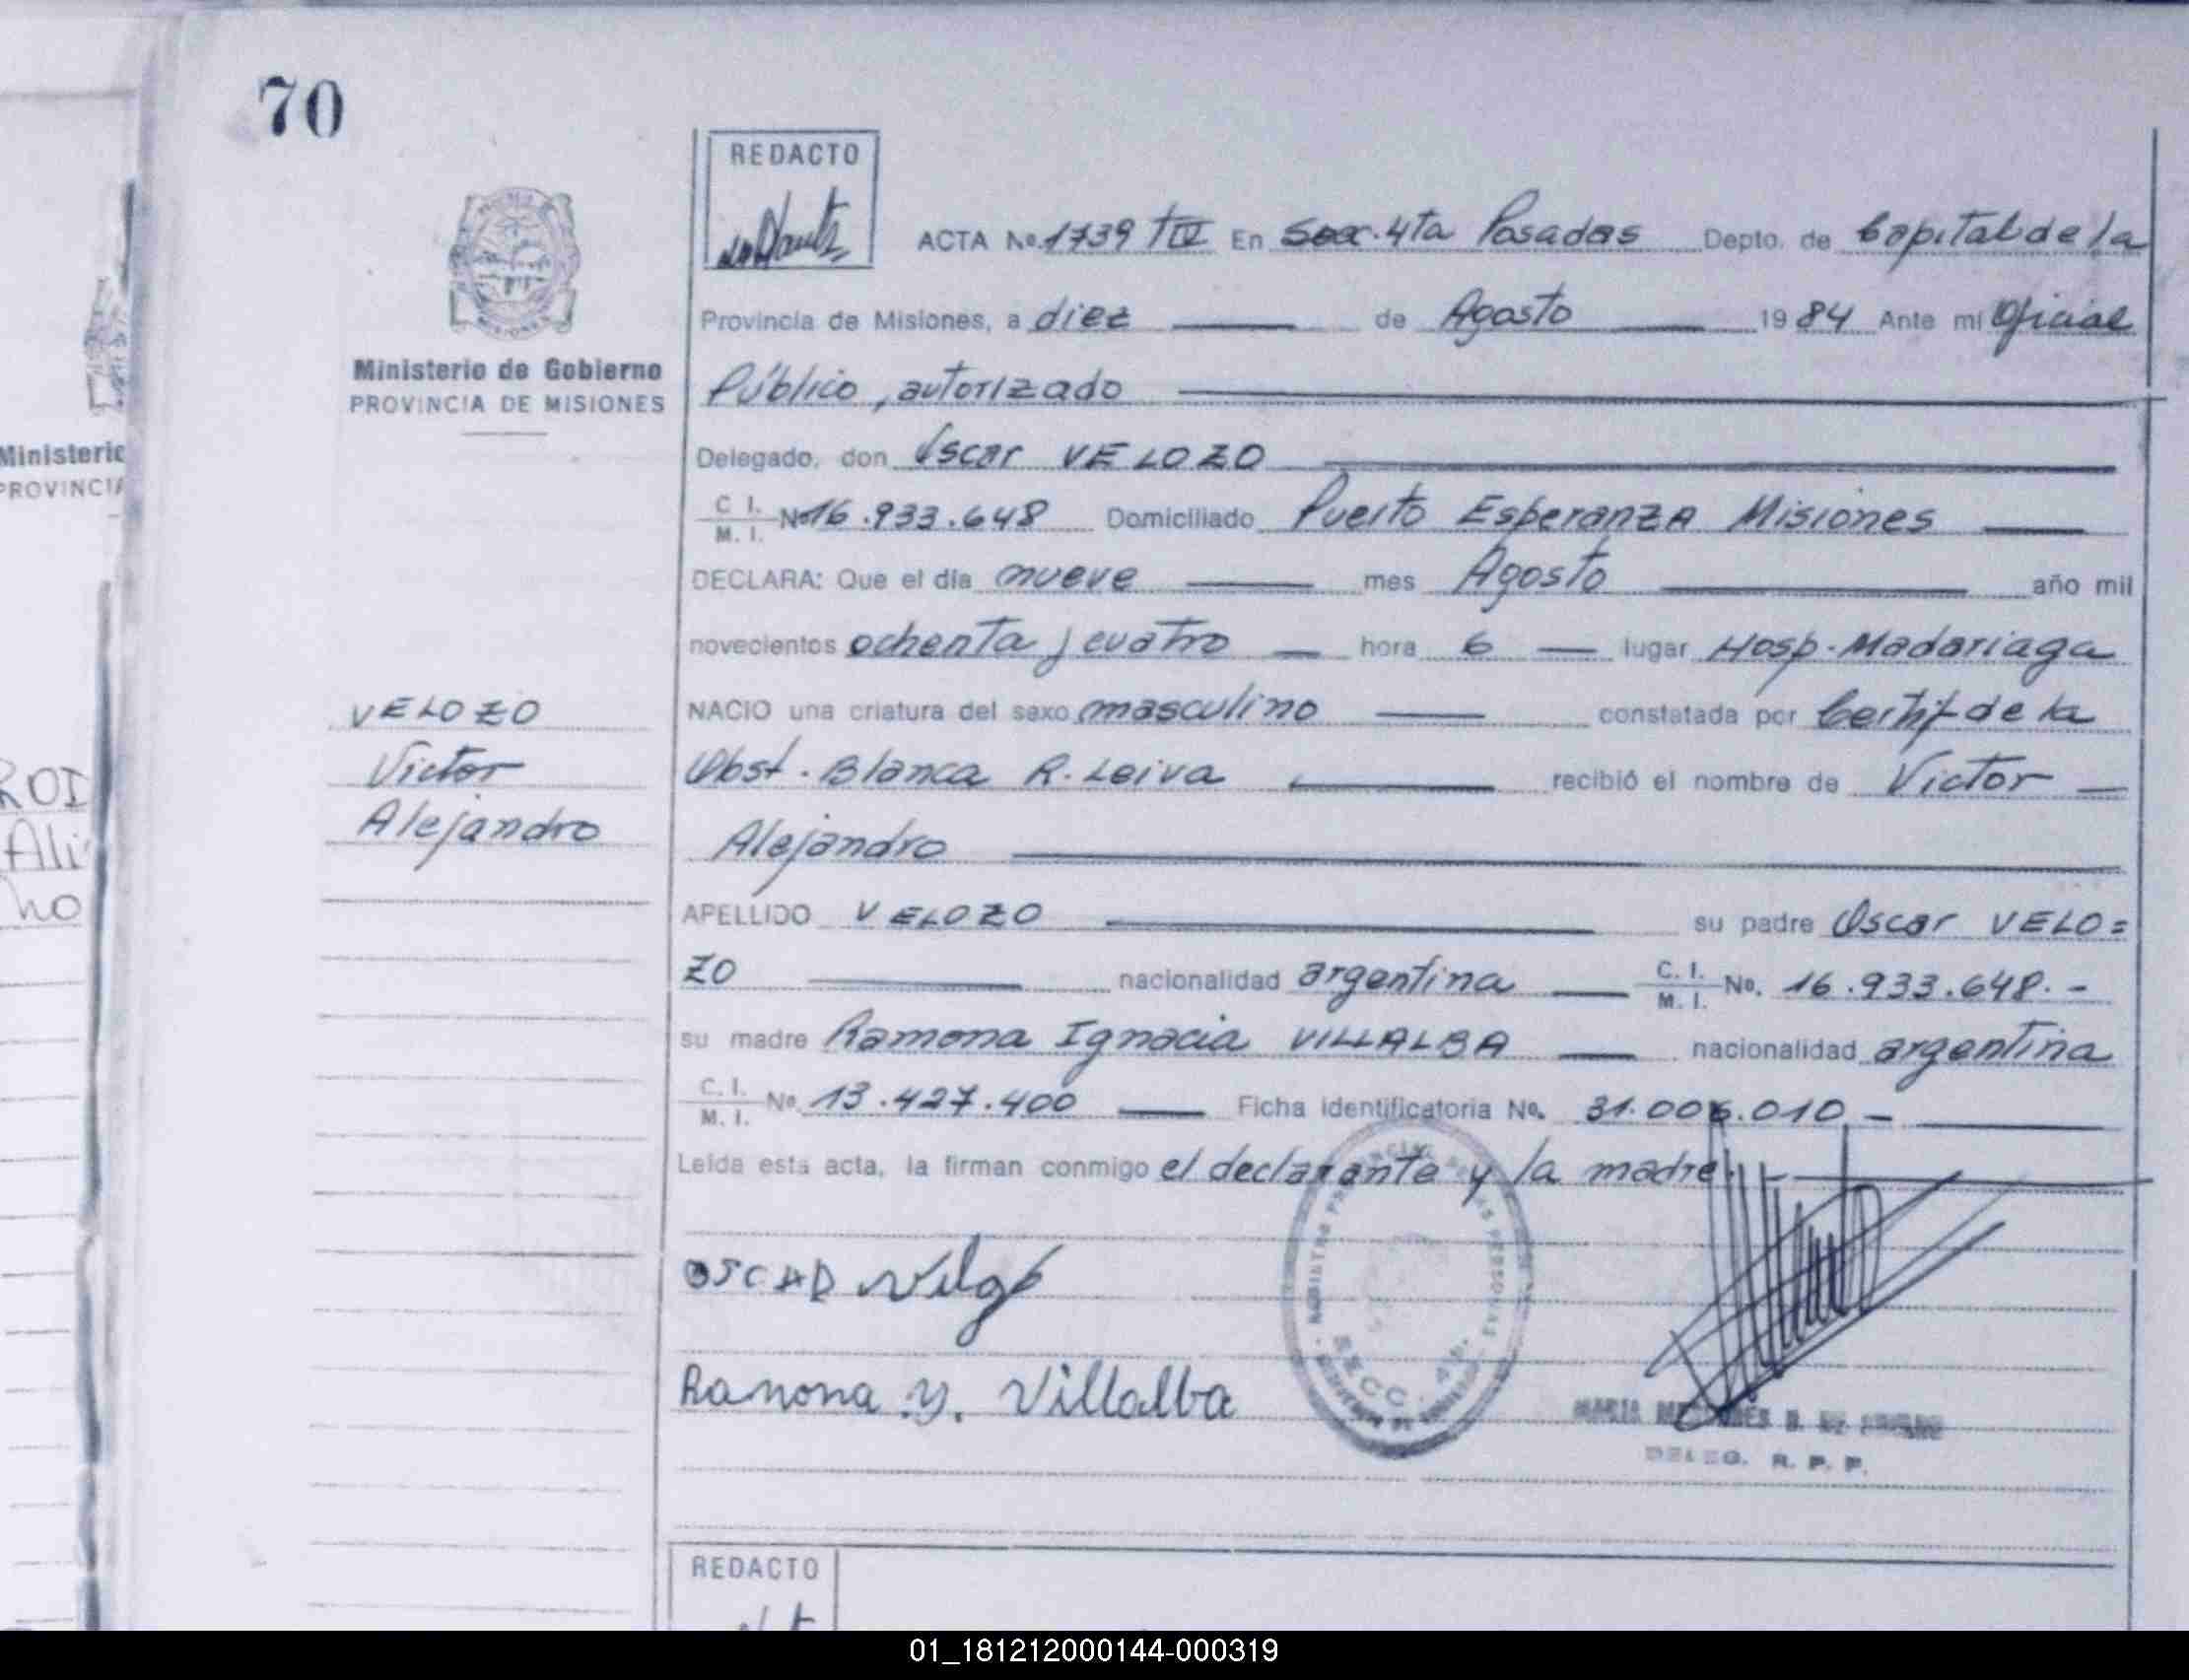 70
REDACTO
ACTA No. 1739 TIV En Secc. 4ta Posadas Depto. de Capital de la
Provincia de Misiones, a diez de Agosto 1984 Ante mi Oficial
Ministerio de Gobierno
PROVINCIA DE MISIONES
Público, autorizado
Delegado, don Oscar VELOZO
Ministerio
PROVINCIA
C. I. M. I. No 16.933.648 Domiciliado Puerto Esperanza Misiones
DECLARA: Que el día nueve mes Agosto año mil
novecientos ochenta y cuatro hora 6 lugar Hosp. Madariaga
VELOZO
NACIO una criatura del sexo masculino constatada por Certif de la
Victor
Obst. Blanca R. Leiva recibió el nombre de Victor
ROI
Alejandro
Ali
Alejandro
ho
APELLIDO VELOZO su padre Oscar VELO=
ZO nacionalidad argentina C. I. M. I. No. 16.933.648.-
su madre Ramona Ignacia VILLALBA nacionalidad argentina
C. I. M. I. No 13.427.400 Ficha identificatoria No. 31.006.010 -
Leída esta acta, la firman conmigo el declarante y la madre.-
OSCAR
Ramona Y. Villalba
SECC. 4ta.
MARIA
DELEG. R. P. P.
REDACTO
01_181212000144-000319